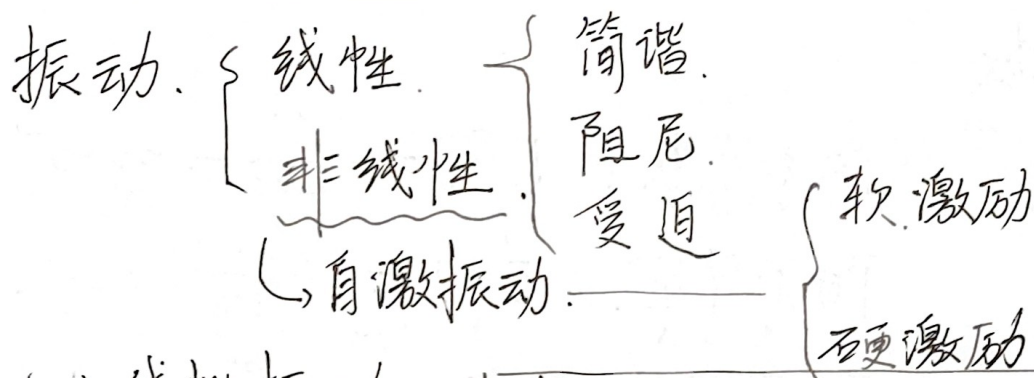 振动. 线性. 简谐.
非线性. 阻尼.
受迫
自激振动. 软.激励
硬激励